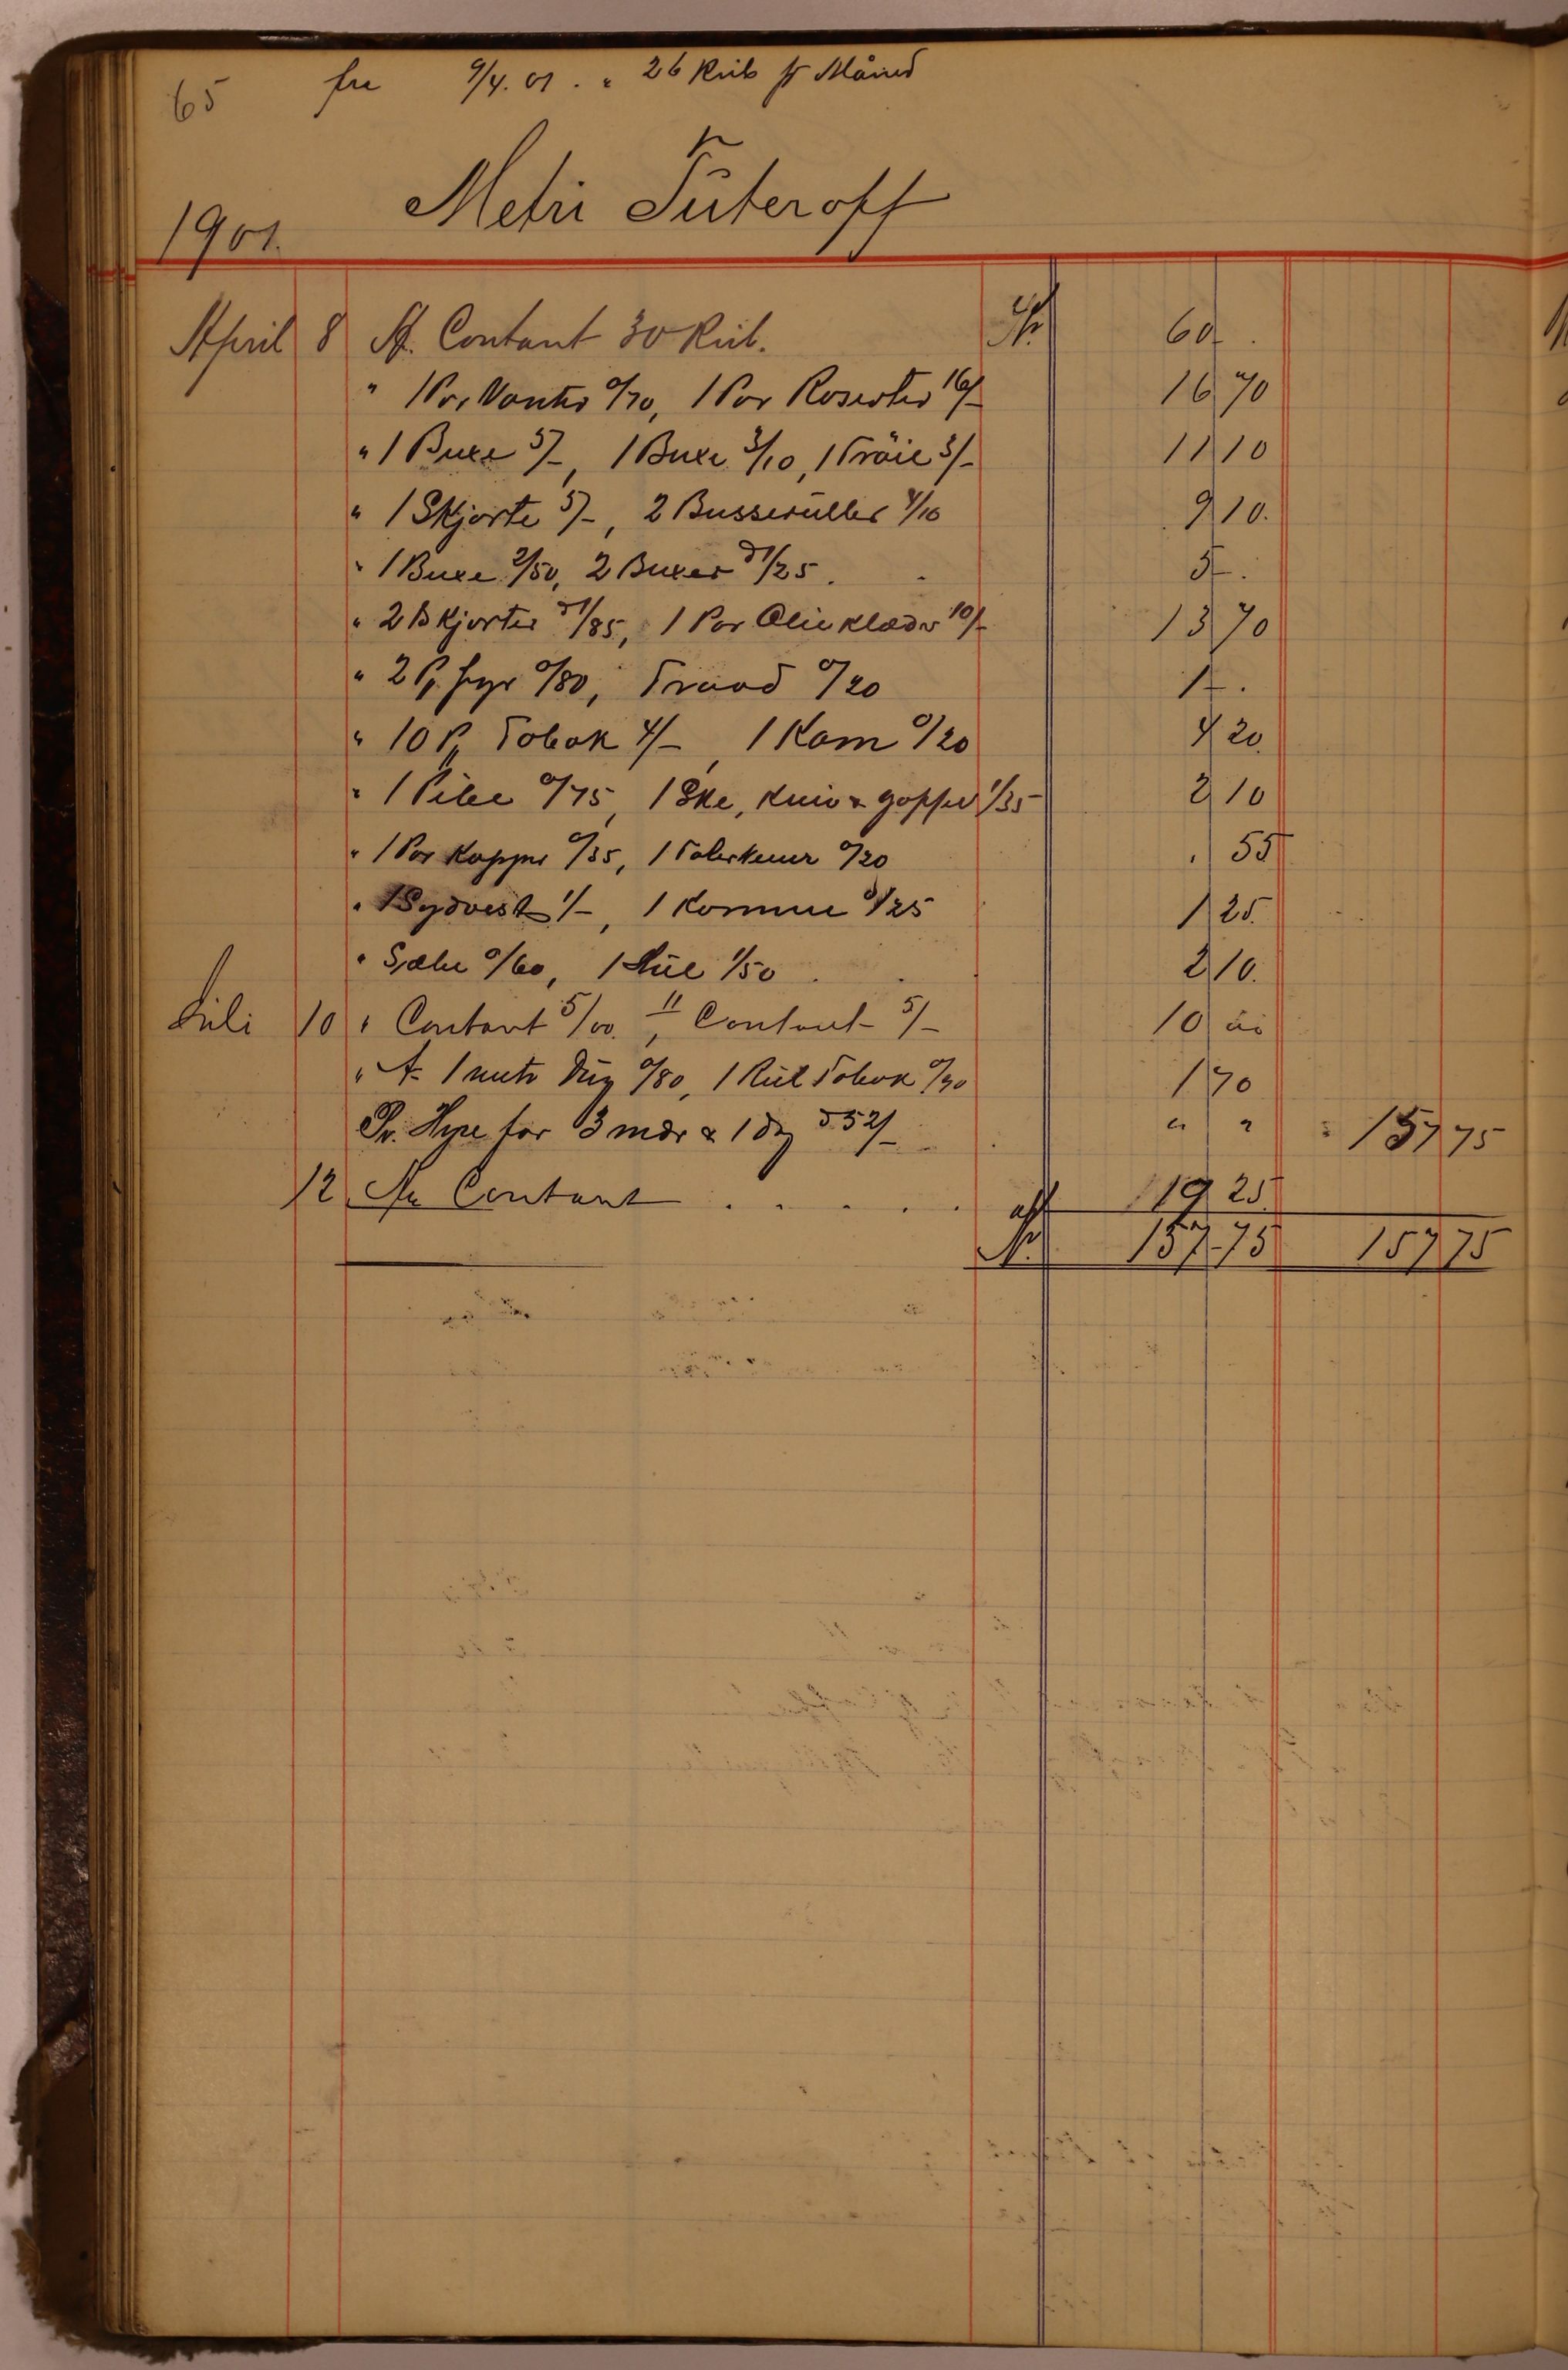 65 fra 9/4. 01. " 26 Rub pr Måned
Metri Tüteroff
1901.
April 8 At. Contant 30 Rub. Kr. 60 - .
" 1 Par Vanter 0/70, 1 Par Rosester 16/- 16 70
" 1 Buxe 5/-, 1 Buxe 3/10, 1 Tröie 3/- 11 10
" 1 Skjorte 5/-, 2 Busserüller 4/10 9 10.
" 1 Buxe 2/50, 2 Buxer à 1/25. 5 - .
" 2 Skjorter à 1/85, 1 Par Olieklæder 10/- 13 70
" 2 P. fyr 0/80, Traad 0/20 1 - .
" 10 P. Tobak 4/-, 1 Kam 0/20 4 20.
" 1 Pibe 0/75, 1 Ske, Kniv & gaffel 1/35 2 10
" 1 Par Kopper 0/35, 1 Talerkener 0/20 . 55
" 1 Sydvest 1/-, 1 Komme 0/25 1 25.
" Sæbe 0/60, 1 Hüe 1/50 . . 2 10.
Juli 10 " Contant 5/00. 11, Contant 5/- 10 00
" At 1 metr Düg 0/80, 1 Rul Tobak 0/90 1 70
Pr. Hyre for 3 mdr & 1 dag à 52/- " " 157 75
12 At Contant . . . . . 19 25.
Kr. 157-75 157 75